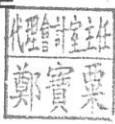 代理會計室主任
鄭寶栗